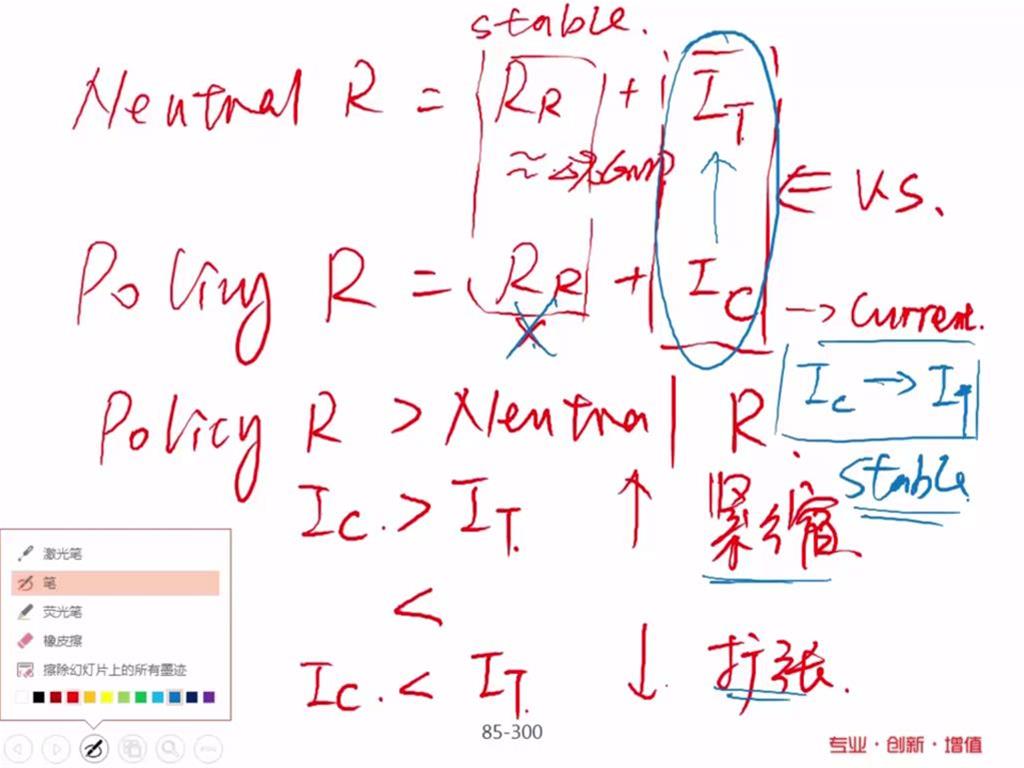 stable.
Neutral R = R_R + I_T
≈ GNP
⇐ VS.
Policy R = R_R + I_C → Current.
X
I_C → I_T
Policy R > Neutral R.
stable
I_C. > I_T ↑ 紧缩
<
I_C. < I_T ↓ 扩张.
激光笔
笔
荧光笔
橡皮擦
擦除幻灯片上的所有墨迹
85-300
专业·创新·增值